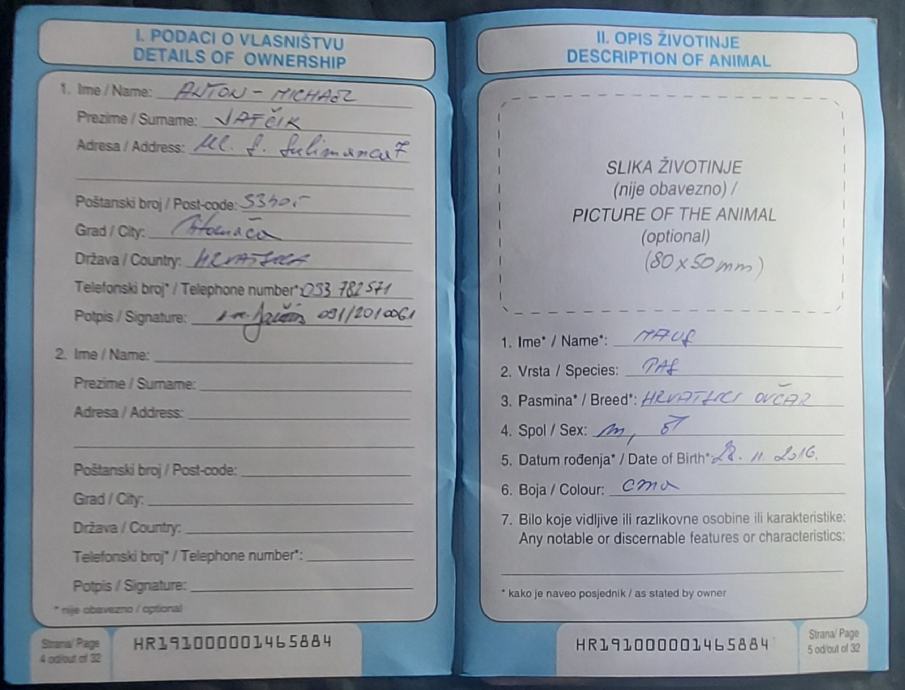 I. PODACI O VLASNIŠTVU
DETAILS OF OWNERSHIP
1. Ime / Name: ANTON - MICHAEL
Prezime / Surname: JATČIK
Adresa / Address: Ul.
Poštanski broj / Post-code: 33405
Grad / City: Pitomača
Država / Country: HRVATSKA
Telefonski broj* / Telephone number*: 033 782 571
Potpis / Signature: 091/2010061
2. Ime / Name:
Prezime / Surname:
Adresa / Address:
Poštanski broj / Post-code:
Grad / City:
Država / Country:
Telefonski broj* / Telephone number*:
Potpis / Signature:
* nije obavezno / optional
Strana/ Page
4 od/out of 32
HR191000001465884
II. OPIS ŽIVOTINJE
DESCRIPTION OF ANIMAL
SLIKA ŽIVOTINJE
(nije obavezno) /
PICTURE OF THE ANIMAL
(optional)
(80 x 50 mm)
1. Ime* / Name*:
2. Vrsta / Species: PAS
3. Pasmina* / Breed*: HRVATSKI OVČAR
4. Spol / Sex: m,
5. Datum rođenja* / Date of Birth*: 28. 11. 2016.
6. Boja / Colour: crna
7. Bilo koje vidljive ili razlikovne osobine ili karakteristike:
Any notable or discernable features or characteristics:
* kako je naveo posjednik / as stated by owner
HR191000001465884
Strana/ Page
5 od/out of 32